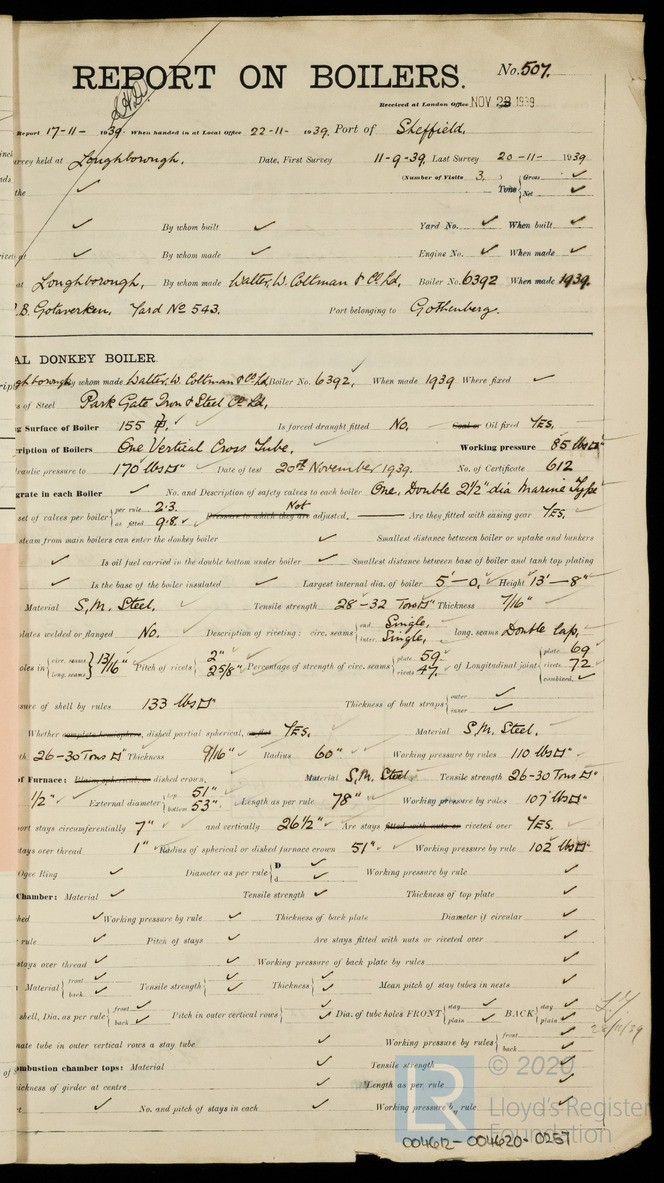 REPORT ON BOILERS.
No. 507.
Received at London Office NOV 23 1939
Report 17-11- 1939. When handed in at Local Office 22-11- 1939. Port of Sheffield.
Survey held at Loughborough. Date, First Survey 11-9-39. Last Survey 20-11- 1939
(Number of Visits 3.) Tons { Gross ✓ Net ✓
the ✓
✓ By whom built ✓ Yard No. ✓ When built ✓
✓ By whom made ✓ Engine No. ✓ When made ✓
at Loughborough. By whom made Walter, W. Coltman & Co. Ld. Boiler No. 6392 When made 1939.
.B. Gotaverken, Yard No 543. Port belonging to Gothenberg.
AL DONKEY BOILER.
ghborough by whom made Walter. W. Coltman & Co Ld Boiler No. 6392, When made 1939 Where fixed ✓
s of Steel Park Gate Iron & Steel Co Ld,
g Surface of Boiler 155 Is forced draught fitted No. Coal or Oil fired YES.
cription of Boilers One Vertical Cross Tube. Working pressure 85 lbs□"
raulic pressure to 170 lbs□" Date of test 20th November 1939. No. of Certificate 612
grate in each Boiler ✓ No. and Description of safety valves to each boiler One, Double 2½" dia Marine Type
set of valves per boiler { per rule 2.3. as fitted 9.8. ✓ Pressure to which they are Not adjusted. Are they fitted with easing gear YES.
steam from main boilers can enter the donkey boiler ✓ Smallest distance between boiler or uptake and bunkers
✓ Is oil fuel carried in the double bottom under boiler ✓ Smallest distance between base of boiler and tank top plating
✓ Is the base of the boiler insulated ✓ Largest internal dia. of boiler 5'-0, Height 13'-8"
Material S.M. Steel. Tensile strength 28-32 Tons□" Thickness 7/16"
plates welded or flanged No. Description of riveting: circ. seams { end Single, inter. Single, long. seams Double Lap,
oles in { circ. seams long. seams } 13/16" Pitch of rivets { 2" 2 5/8" Percentage of strength of circ. seams { plate 59. rivets 47. of Longitudinal joint { plate 69 rivets 72 combined. ✓
sure of shell by rules 133 lbs□" Thickness of butt straps { outer ✓ inner ✓
Whether complete hemisphere, dished partial spherical, or flat YES. Material S.M. Steel.
th 26-30 Tons □" Thickness 9/16" Radius 60" Working pressure by rules 110 lbs□"
of Furnace: Plain, spherical, or dished crown. Material S.M. Steel. Tensile strength 26-30 Tons □"
1/2" External diameter { top 51" bottom 53" Length as per rule 78" Working pressure by rules 107 lbs□"
port stays circumferentially 7" and vertically 26½" Are stays fitted with nuts or riveted over YES.
stays over thread 1" Radius of spherical or dished furnace crown 51" Working pressure by rule 102 lbs□"
Ogee Ring ✓ Diameter as per rule { D ✓ d ✓ Working pressure by rule ✓
Chamber: Material ✓ Tensile strength ✓ Thickness of top plate ✓
hed ✓ Working pressure by rule ✓ Thickness of back plate Diameter if circular ✓
rule ✓ Pitch of stays ✓ Are stays fitted with nuts or riveted over ✓
stays over thread ✓ Working pressure of back plate by rules ✓
: Material { front ✓ back ✓ Tensile strength { ✓ ✓ Thickness { ✓ ✓ Mean pitch of stay tubes in nests ✓
shell, Dia. as per rule { front ✓ back ✓ Pitch in outer vertical rows { ✓ ✓ Dia. of tube holes FRONT { stay ✓ plain ✓ BACK { stay ✓ plain ✓
nate tube in outer vertical rows a stay tube ✓ Working pressure by rules { front ✓ back ✓
ombustion chamber tops: Material ✓ Tensile strength ✓
ickness of girder at centre ✓ Length as per rule ✓
✓ No. and pitch of stays in each ✓ Working pressure by rule ✓
© 2020
Lloyd's Register
Foundation
LR
004612-004620-0257